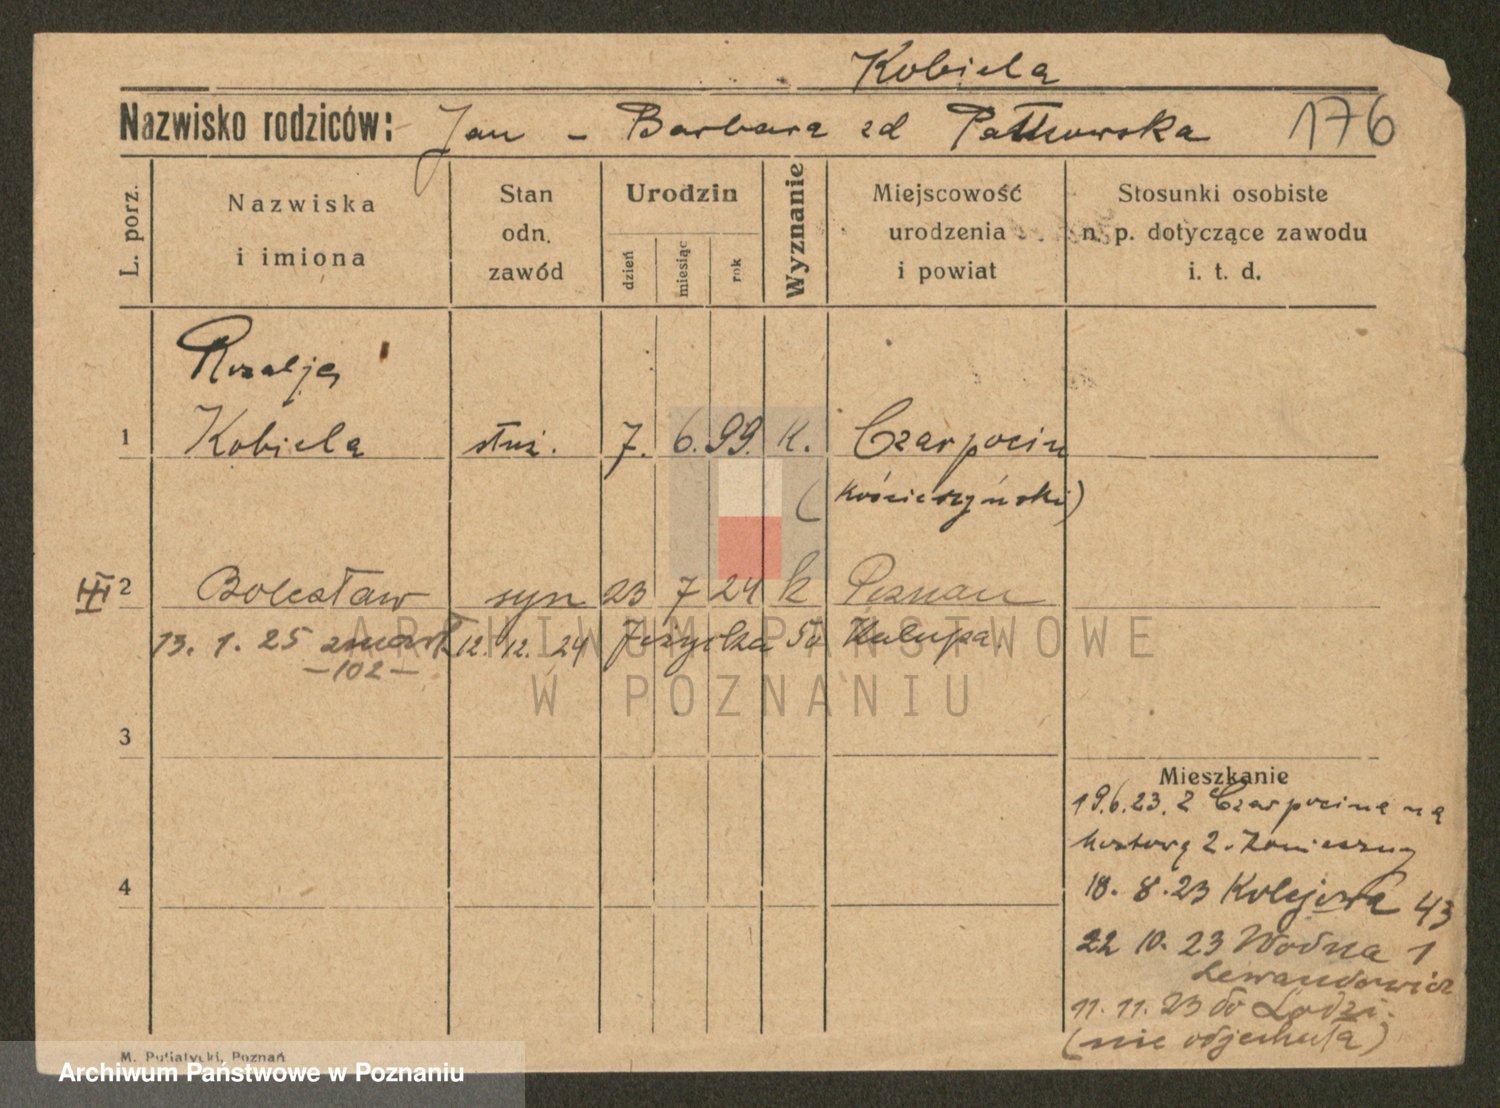 Kobiela
Nazwisko rodziców: Jan - Barbara zd Pałkowska 176
L. porz.
Nazwiska i imiona
Stan odn. zawód
Urodzin
dzień
miesiąc
rok
Wyznanie
Miejscowość urodzenia i powiat
Stosunki osobiste n. p. dotyczące zawodu i. t. d.
Rozalja
1 Kobiela służ. 7. 6. 99. k. Czarpocin
(kościerzyński)
III 2 Bolesław syn 23 7 24 k Poznań
13. 1. 25 zmarł 12. 12. 24 Jeżycka 50 Kalupa.
-102-
3
Mieszkanie
19.6.23. z Czarpocina na
2.
4
18. 8. 23 Kolejowa 43
22 10. 23 Wodna 1
Lewandowicz
11. 11. 23 do Łodzi.
(nie odjechała)
M. Putiatycki, Poznań
ARCHIWUM PAŃSTWOWE
W POZNANIU
Archiwum Państwowe w Poznaniu